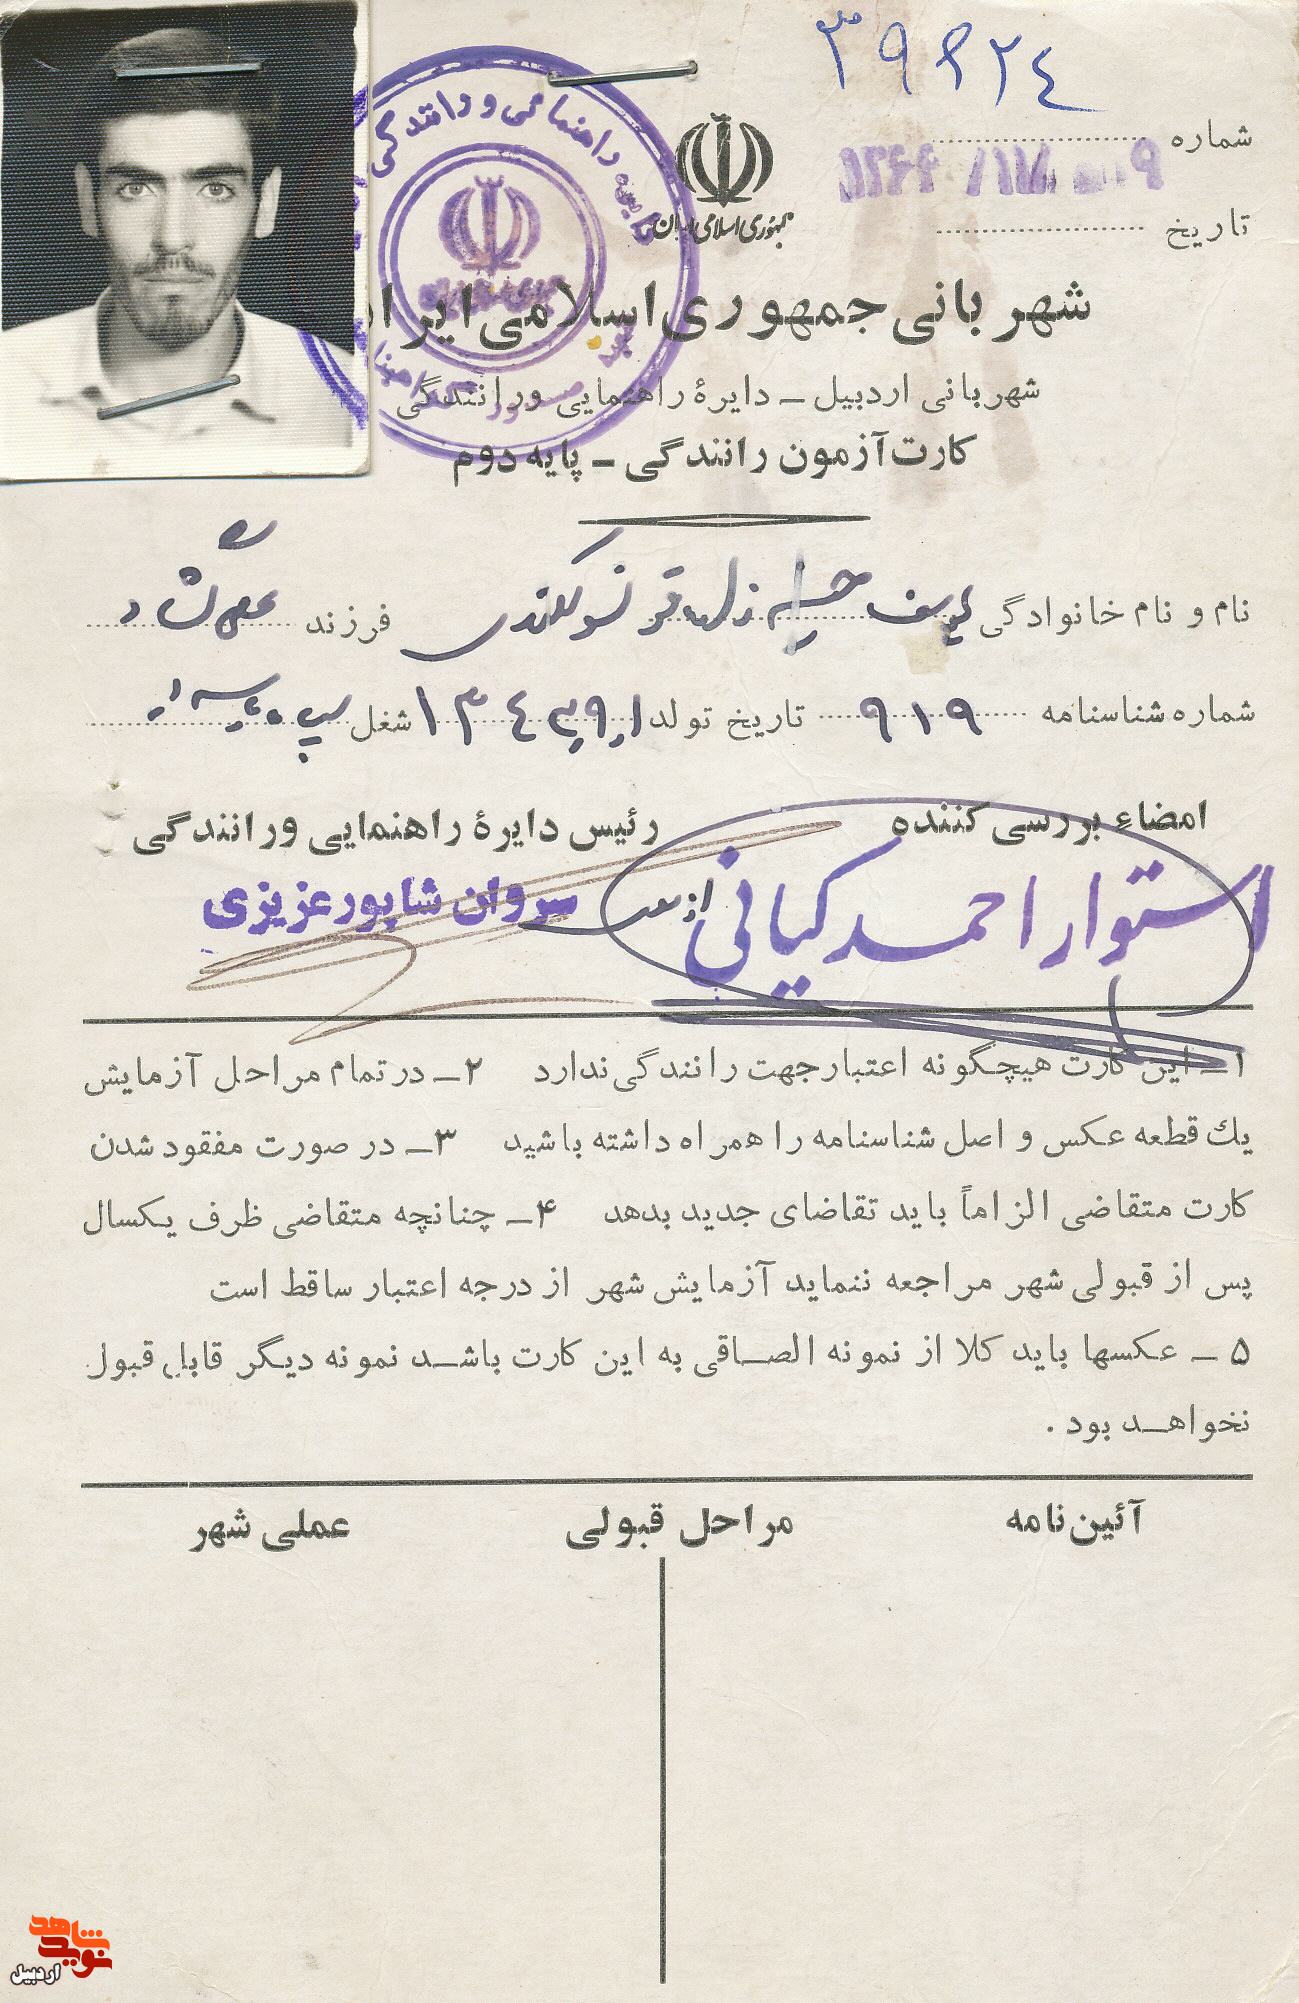 ۳۹۶۲۴
شماره
تاریخ
جمهوری اسلامی ایران
شهربانی جمهوری اسلامی ایران
شهربانی اردبیل ـ دایرهٔ راهنمایی ورانندگی
کارت آزمون رانندگی ـ پایه دوم
نام و نام خانوادگی یوسف فرزند
شماره شناسنامه ۹۱۹ تاریخ تولد شغل
امضاءِ بررسی کننده رئیس دایرهٔ راهنمایی ورانندگی
استوار احمد کیانی سروان شاپور عزیزی
۱ـ این کارت هیچگونه اعتبارجهت رانندگی ندارد ۲ـ درتمام مراحل آزمایش
یك قطعه عکس و اصل شناسنامه را همراه داشته باشید ۳ـ در صورت مفقود شدن
کارت متقاضی الزاماً باید تقاضای جدید بدهد ۴ـ چنانچه متقاضی ظرف یکسال
پس از قبولی شهر مراجعه ننماید آزمایش شهر از درجه اعتبار ساقط است
۵ ـ عکسها باید کلا از نمونه الصاقی به این کارت باشد نمونه دیگر قابل قبول
نخواهد بود .
آئین نامه مراحل قبولی عملی شهر
نوید شاهد
اردبیل